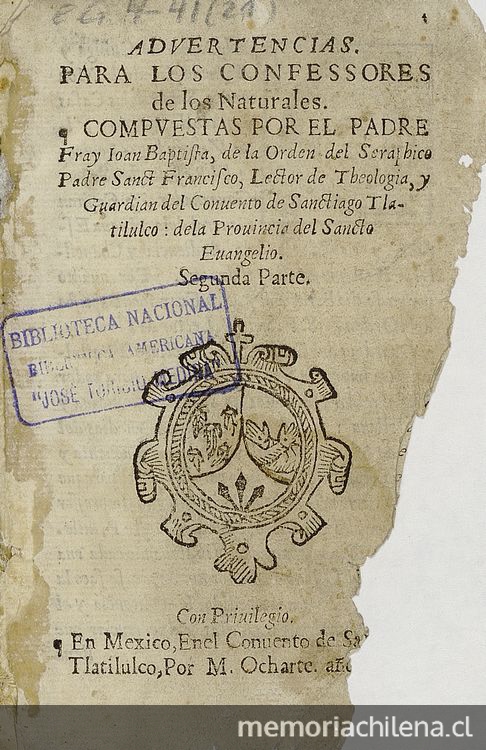 EG 4-41(21)
ADVERTENCIAS.
PARA LOS CONFESSORES
de los Naturales.
¶ COMPVESTAS POR EL PADRE
Fray Ioan Baptista, de la Orden del Seraphico
Padre Sanct Francisco, Lector de Theologia, y
Guardian del Conuento de Sanctiago Tla-
tilulco: dela Prouincia del Sancto
Euangelio.
Segunda Parte.
BIBLIOTECA NACIONAL
BIBLIOTECA AMERICANA
"JOSÉ TORIBIO MEDINA"
Con Priuilegio.
¶ En Mexico, Enel Conuento de
Tlatilulco, Por M. Ocharte. año
memoriachilena.cl